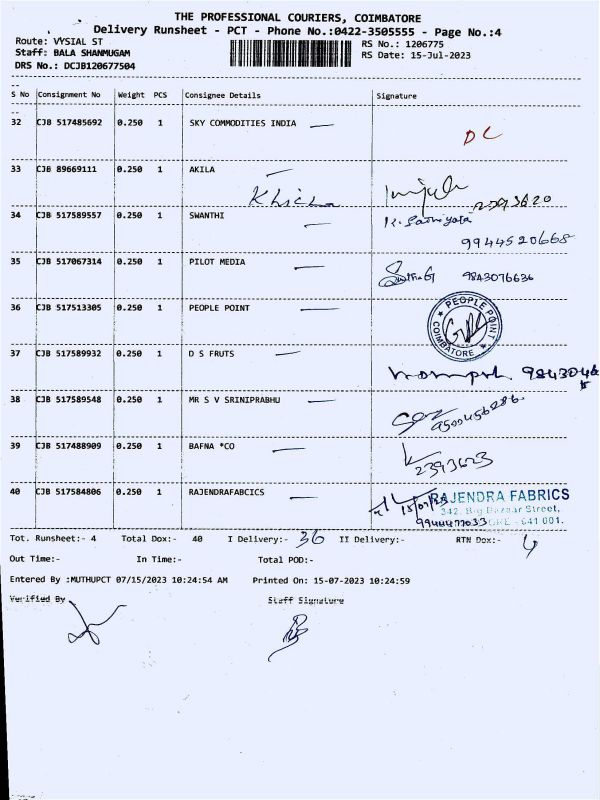 THE PROFESSIONAL COURIERS, COIMBATORE
Delivery Runsheet - PCT - Phone No.:0422-3505555 - Page No.:4
Route: VYSIAL ST
RS No.: 1206775
Staff: BALA SHANMUGAM
RS Date: 15-Jul-2023
DRS No.: DCJB120677504
S No Consignment No Weight PCS Consignee Details Signature
32 CJB 517485692 0.250 1 SKY COMMODITIES INDIA DC
33 CJB 89669111 0.250 1 AKILA
Khicha 2393620
34 CJB 517589557 0.250 1 SWANTHI
9944520668
35 CJB 517067314 0.250 1 PILOT MEDIA 9843076636
36 CJB 517513305 0.250 1 PEOPLE POINT
PEOPLE POINT COIMBATORE
37 CJB 517589932 0.250 1 D S FRUTS
38 CJB 517589548 0.250 1 MR S V SRINIPRABHU
9500456286
39 CJB 517488909 0.250 1 BAFNA *CO
2393623
40 CJB 517584806 0.250 1 RAJENDRAFABCICS RAJENDRA FABRICS
342, Big Bazaar Street,
9944477033 - 641 001.
Tot. Runsheet:- 4 Total Dox:- 40 I Delivery:- 36 II Delivery:- RTN Dox:- 4
Out Time:- In Time:- Total POD:-
Entered By :MUTHUPCT 07/15/2023 10:24:54 AM Printed On: 15-07-2023 10:24:59
Verified By Staff Signature